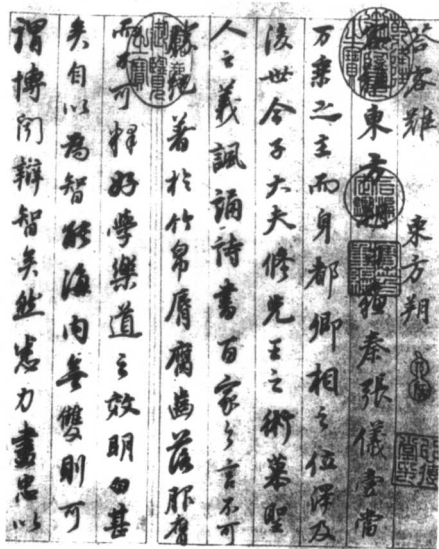 答客難 東方朔
客難東方朔曰蘇秦張儀壹當
万乘之主而身都卿相之位澤及
後世今子大夫修先王之術慕聖
人之義諷誦詩書百家之言不可
勝著於竹帛脣腐齒落服膺
而不可釋好學樂道之效明白甚
矣自以為智能海內無雙則可
謂博聞辯智矣然悉力盡忠以